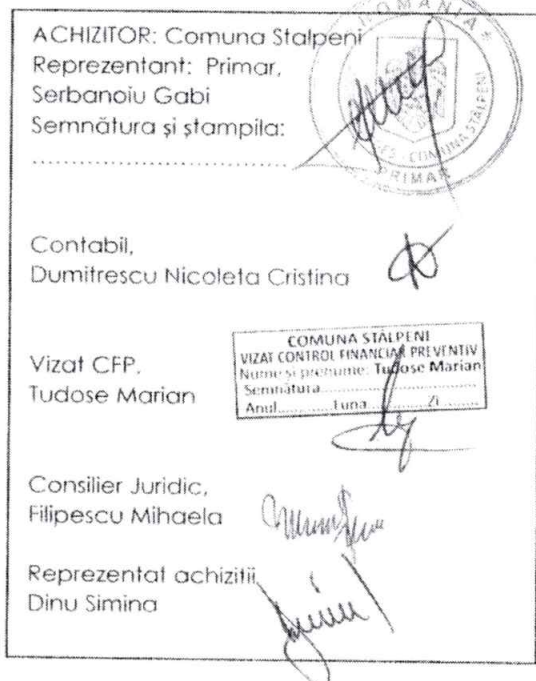 ACHIZITOR: Comuna Stalpeni
Reprezentant: Primar,
Serbanoiu Gabi
Semnătura și ștampila:
..................................
ROMANIA *
COMUNA STALPENI
PRIMAR
Contabil,
Dumitrescu Nicoleta Cristina
COMUNA STÂLPENI
VIZAT CONTROL FINANCIAR PREVENTIV
Nume și prenume: Tudose Marian
Semnătura..........................
Anul............Luna............Zi.........
Vizat CFP.
Tudose Marian
Consilier Juridic,
Filipescu Mihaela
Reprezentat achizitii,
Dinu Simina